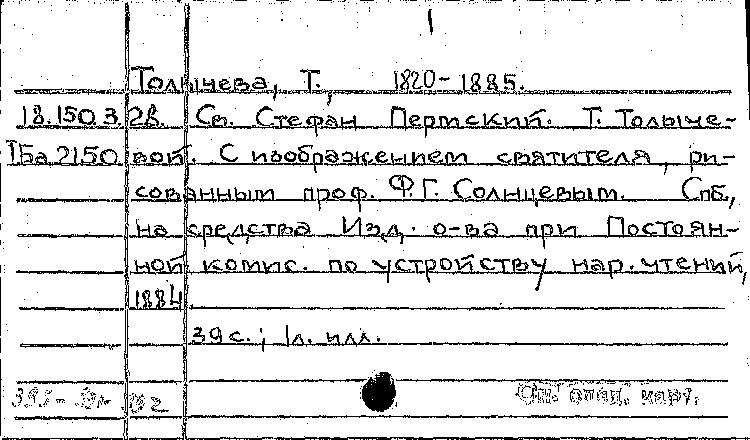 Толычева, Т., 1820-1885.
18.150.3.28. Св. Стефан Пермский. Т. Толыче-
Iба 2150 вой. С изображением святителя, ри-
сованным проф. Ф.Г. Солнцевым. Спб.,
на средства Изд. о-ва при Постоян-
ной комис. по устройству нар. чтений,
1884.
39 с.; 1л. илл.